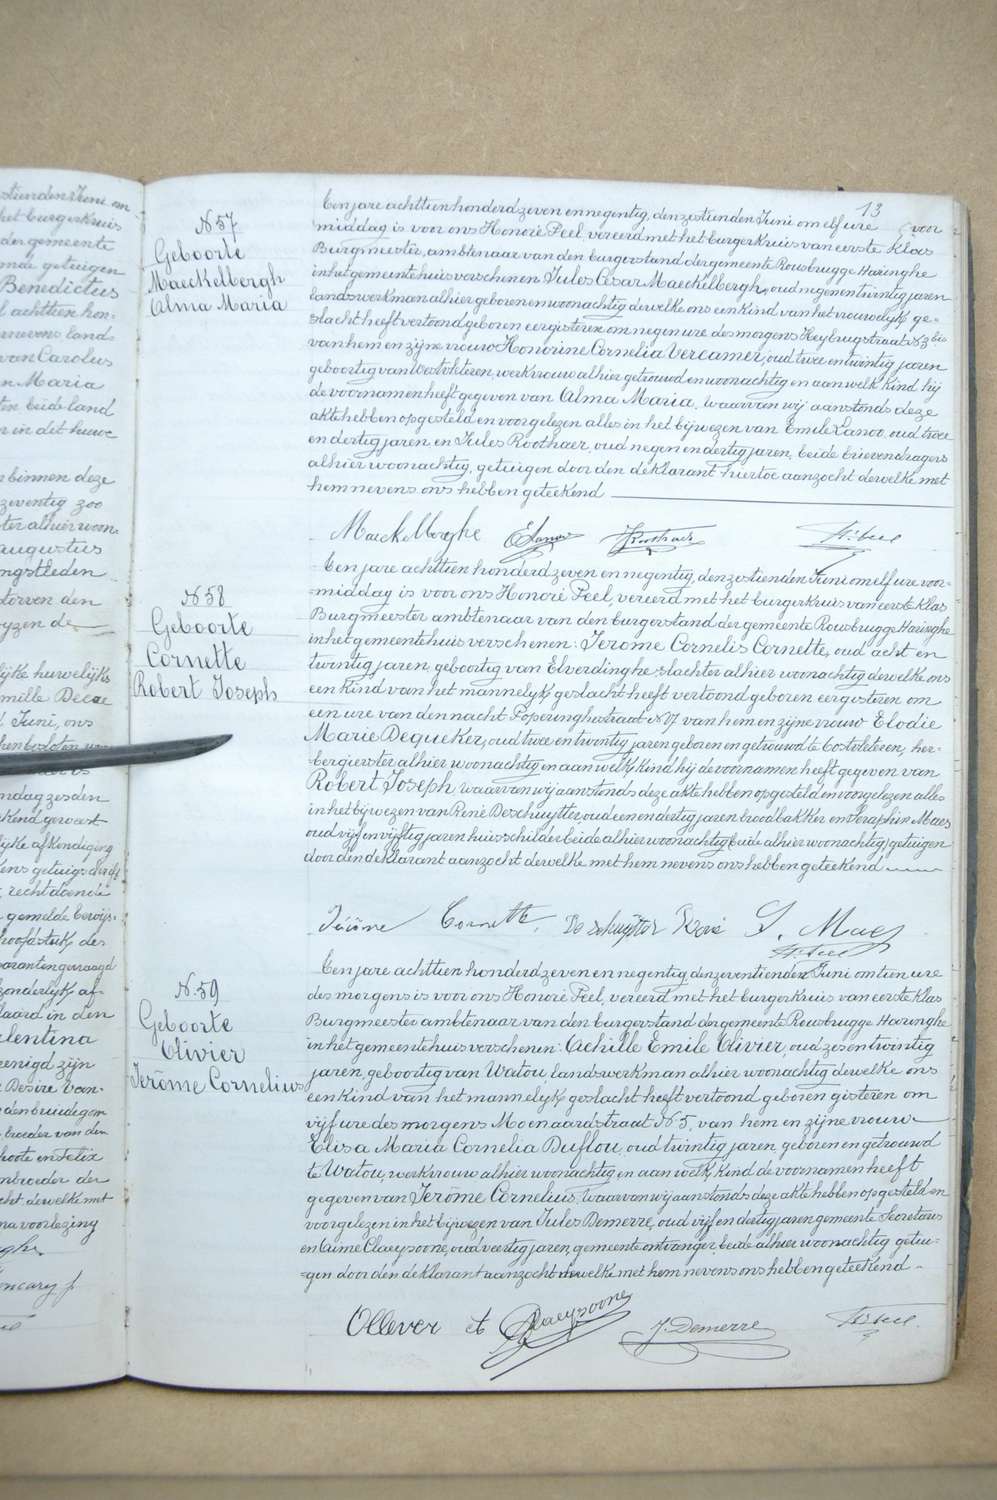 stienden Juni om
het burgerkruis
der gemeente
getuigen
Benedictus
achttien hon-
nevens land-
van Carolus
Maria
beide land
in dit huwe
binnen deze
zeventig zoo
ter alhier woon-
augustus
ngstleden
storven den
yzen de
lijke huwelijks
mille Decae
Juni, ons
ndag zesden
kend gewest
lijke afkondiging
ens getuigschrift
recht doende
gemelde bewijs-
hoofdstuk der
paranten gevraagd
zonderlyk af-
laard in den
alentina
eenigd zijn
Desiré Van-
den bruidegom
broeder van den
hoote en Felix
nbroeder der
cht derwelke met
na voorlezing
13
N 57
Geboorte
Maeckelbergh
Alma Maria
Een jare achttien honderd zeven en negentig, den zestienden Juni om elf ure voor
middag is voor ons Honoré Peel, vereerd met het burgerkruis van eerste klas
Burgmeester, ambtenaar van den burgerstand der gemeente Rousbrugge Haringhe
in het gemeentehuis verschenen Jules César Maeckelbergh, oud negen en twintig jaren
landswerkman alhier geboren en woonachtig dewelke ons een kind van het vrouwelijk ge-
slacht heeft vertoond geboren eergisteren om negen ure des morgens Heybrugstraat N 3 bis
van hem en zijne vrouw Honorine Cornelia Vercamer, oud twee en twintig jaren
geboortig van Westvleteren, werkvrouw alhier getrouwd en woonachtig en aan welk kind hij
de voornamen heeft gegeven van Alma Maria. Waarvan wij aanstonds deze
akte hebben opgesteld en voorgelezen alles in het bijwezen van Emile Lanoo, oud twee
en dertig jaren en Jules Roothaer, oud negen en dertig jaren, beide brievendragers
alhier woonachtig, getuigen door den deklarant hiertoe aanzocht derwelke met
hem nevens ons hebben geteekend
Maeckelberghe ELanoo JRoothaer H. Peel
N 58
Geboorte
Cornette
Robert Joseph
Een jare achttien honderd zeven en negentig, den zestienden Juni om elf ure voor-
=middag is voor ons Honoré Peel, vereerd met het burgerkruis van eerste klas
Burgmeester ambtenaar van den burgerstand der gemeente Rousbrugge Haringhe
in het gemeentehuis verschenen: Jerome Cornelis Cornette, oud acht en
twintig jaren, geboortig van Elverdinghe, slachter alhier woonachtig dewelke ons
een kind van het mannelijk geslacht heeft vertoond geboren eergisteren om
een ure van den nacht Poperinghestraat N 17 van hem en zijne vrouw Elodie
Marie Dequeker, oud twee en twintig jaren geboren en getrouwd te Oostvleteren, her-
bergierster alhier woonachtig en aan welk kind hij de voornamen heeft gegeven van
Robert Joseph waarvan wij aanstonds deze akte hebben opgesteld en voorgelezen alles
in het bijwezen van René Deschuytter, oud een en dertig jaren broodbakker en Seraphin Maes
oud vijf en vijftig jaren huisschilder beide alhier woonachtig (beide alhier woonachtig) getuigen
door den deklarant aanzocht derwelke met hem nevens ons hebben geteekend
Jérôme Cornette, De schuÿtter Réné S. Maes
H. Peel
N. 59
Geboorte
Olivier
Jerôme Cornelius
Een jare achttien honderd zeven en negentig den zeventienden Juni om tien ure
des morgens is voor ons Honoré Peel, vereerd met het burgerkruis van eerste klas
Burgmeester ambtenaar van den burgerstand der gemeente Rousbrugge Haringhe
in het gemeentehuis verschenen: Achille Emile Olivier, oud zes en twintig
jaren, geboortig van Watou, landswerkman alhier woonachtig dewelke ons
een kind van het mannelijk geslacht heeft vertoond geboren gisteren om
vijf ure des morgens Moenaardstraat N 5, van hem en zijne vrouw
Elisa Maria Cornelia Duflou, oud twintig jaren, geboren en getrouwd
te Watou, werkvrouw alhier woonachtig en aan welk kind de voornamen heeft
gegeven van Jerôme Cornelius. Waarvan wij aanstonds deze akte hebben opgesteld en
voorgelezen in het bijwezen van Jules Demerre, oud vijf en dertig jaren gemeente Secretaris
en Aimé Claeysoone, oud veertig jaren, gemeente ontvanger, beide alhier woonachtig getui-
=gen door den deklarant aanzocht derwelke met hem nevens ons hebben geteekend
Ollever et Claeysoone J. Demerre H. Peel